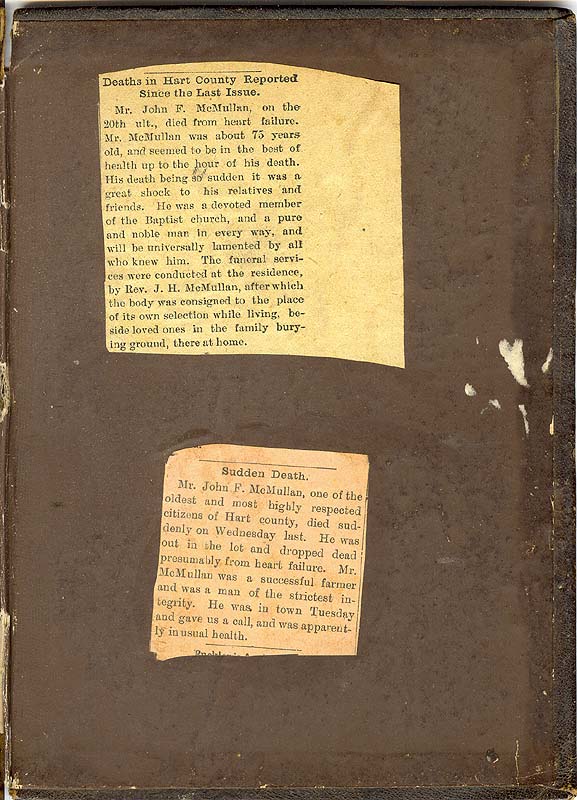 Deaths in Hart County Reported
Since the Last Issue.
Mr. John F. McMullan, on the
20th ult., died from heart failure.
Mr. McMullan was about 75 years
old, and seemed to be in the best of
health up to the hour of his death.
His death being so sudden it was a
great shock to his relatives and
friends. He was a devoted member
of the Baptist church, and a pure
and noble man in every way, and
will be universally lamented by all
who knew him. The funeral servi-
ces were conducted at the residence,
by Rev. J. H. McMullan, after which
the body was consigned to the place
of its own selection while living, be-
side loved ones in the family bury-
ing ground, there at home.
Sudden Death.
Mr. John F. McMullan, one of the
oldest and most highly respected
citizens of Hart county, died sud-
denly on Wednesday last. He was
out in the lot and dropped dead
presumably from heart failure. Mr.
McMullan was a successful farmer
and was a man of the strictest in-
tegrity. He was in town Tuesday
and gave us a call, and was apparent-
ly in usual health.